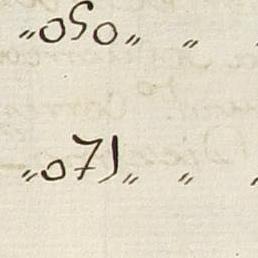 „050„ „ „
„071„ „ „